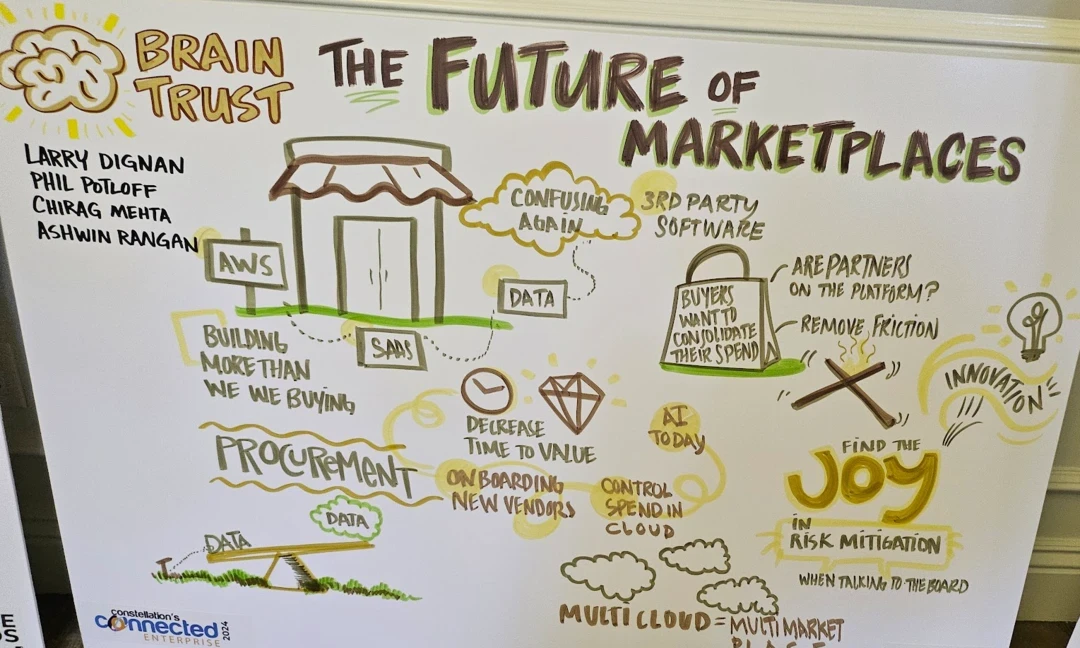 BRAIN
TRUST
THE FUTURE OF
MARKETPLACES
LARRY DIGNAN
PHIL POTLOFF
CHIRAG MEHTA
ASHWIN RANGAN
AWS
CONFUSING
AGAIN
3RD PARTY
SOFTWARE
DATA
SAAS
BUYERS
WANT TO
CONSOLIDATE
THEIR SPEND
ARE PARTNERS
ON THE PLATFORM?
REMOVE FRICTION
INNOVATION
BUILDING
MORE THAN
WE WE BUYING
DECREASE
TIME TO VALUE
AI
TODAY
PROCUREMENT
ONBOARDING
NEW VENDORS
CONTROL
SPEND IN
CLOUD
FIND THE
JOY
IN
RISK MITIGATION
WHEN TALKING TO THE BOARD
DATA
DATA
MULTI CLOUD = MULTI MARKET
constellation's
connected
ENTERPRISE
2024
E
S